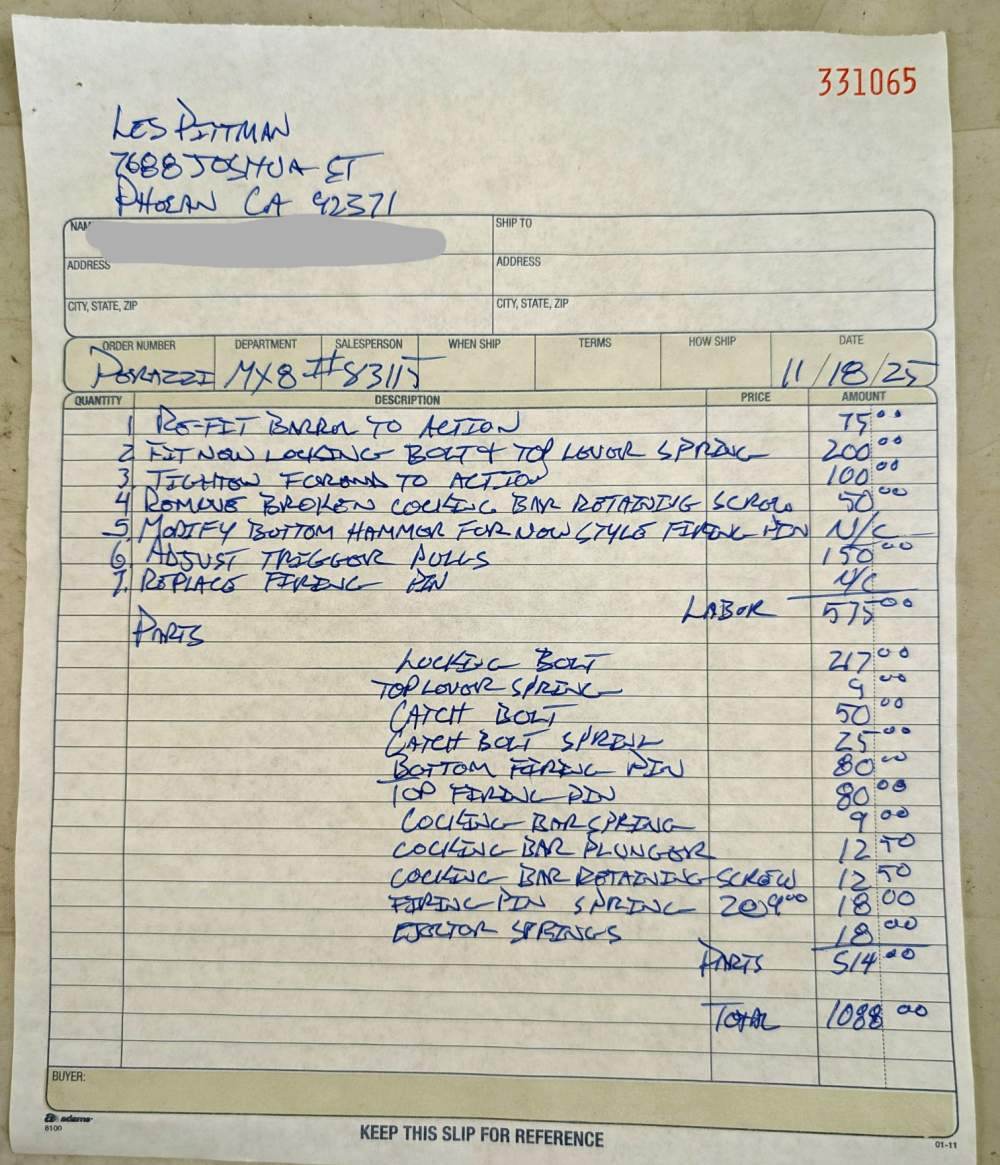 331065
LES PITTMAN
7688 JOSHUA ST
PHELAN CA 92371
NAM
SHIP TO
ADDRESS
ADDRESS
CITY, STATE, ZIP
CITY, STATE, ZIP
ORDER NUMBER DEPARTMENT SALESPERSON WHEN SHIP TERMS HOW SHIP DATE
PERAZZI MX8 #83115 11/18/25
QUANTITY DESCRIPTION PRICE AMOUNT
1 RE-FIT BARREL TO ACTION 75 00
2 FIT NEW LOCKING BOLT & TOP LEVER SPRING 200 00
3. TIGHTEN FOREND TO ACTION 100 00
4 REMOVE BROKEN COCKING BAR RETAINING SCREW 50 00
5. MODIFY BOTTOM HAMMER FOR NEW STYLE FIRING PIN N/C
6. ADJUST TRIGGER PULLS 150 00
7. REPLACE FIRING PIN N/C
LABOR 575 00
PARTS
LOCKING BOLT 217 00
TOP LEVER SPRING 9 00
CATCH BOLT 50 00
CATCH BOLT SPRING 25 00
BOTTOM FIRING PIN 80 00
TOP FIRING PIN 80 00
COCKING BAR SPRING 9 00
COCKING BAR PLUNGER 12 50
COCKING BAR RETAINING SCREW 12 50
FIRING PIN SPRING 2@9 00 18 00
EJECTOR SPRINGS 18 00
PARTS 514 00
TOTAL 1088 00
BUYER:
adams
8100
KEEP THIS SLIP FOR REFERENCE
01-11